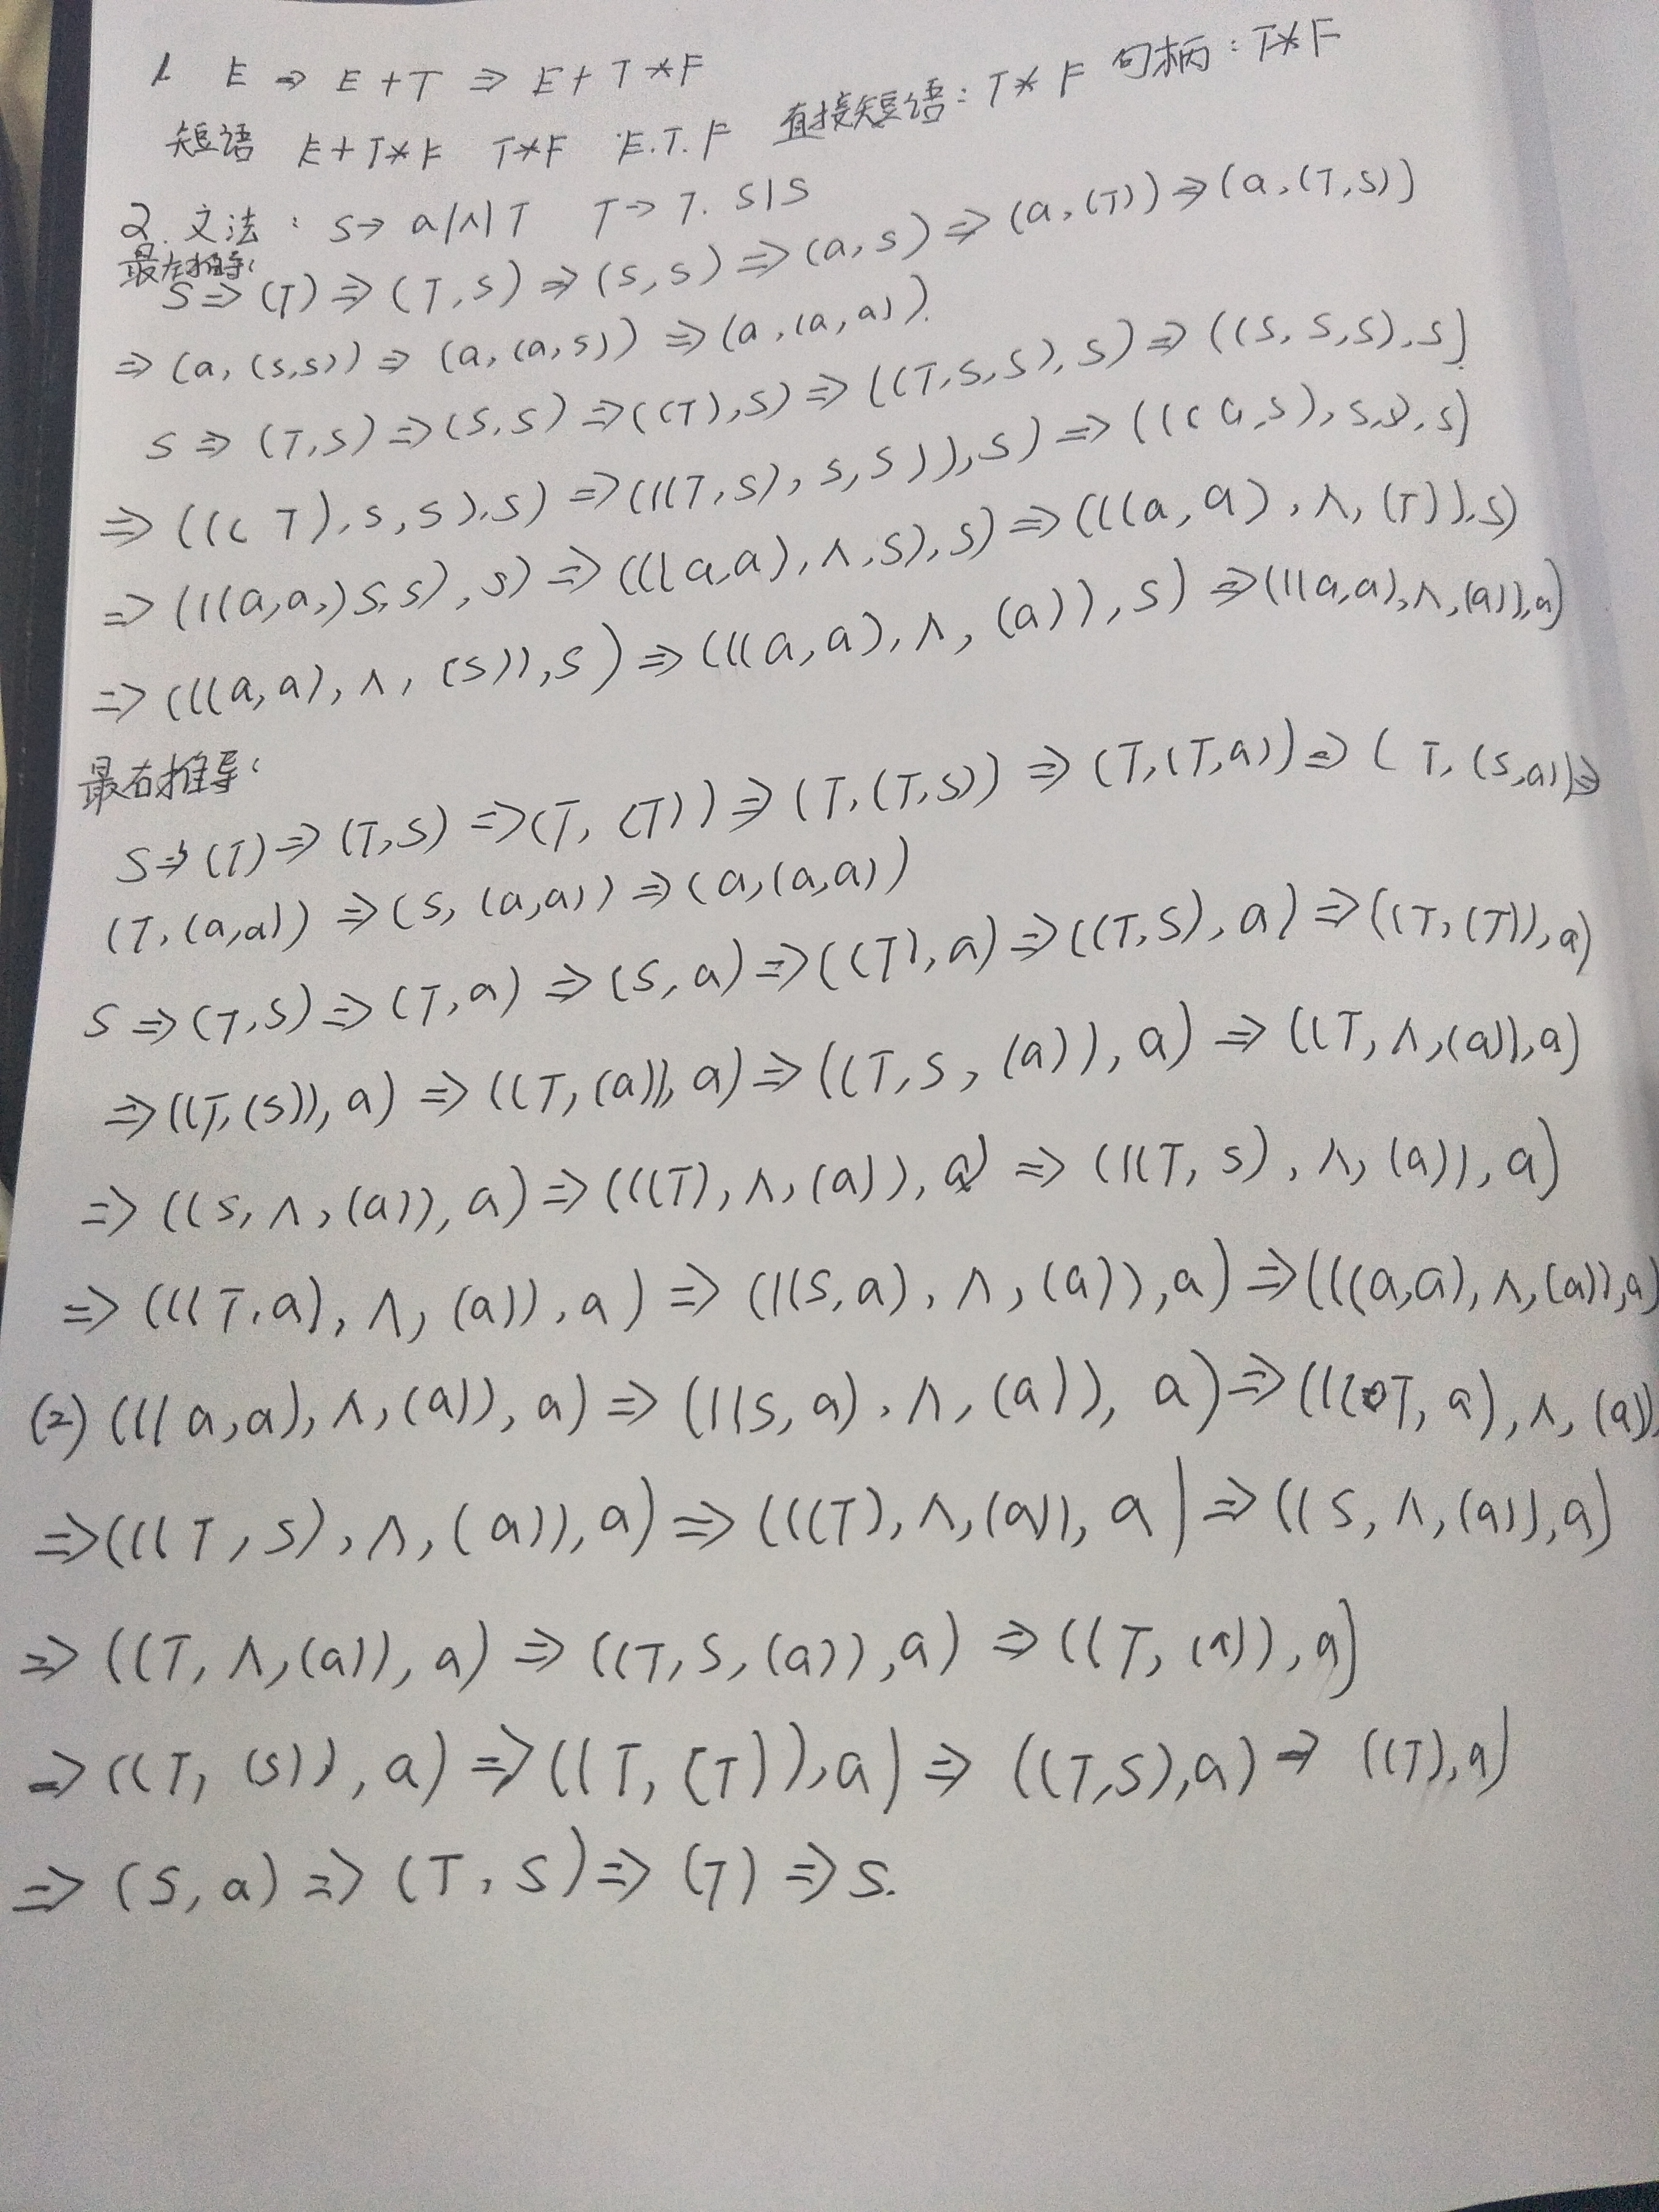 1. E ⇒ E+T ⇒ E+T*F
短语 E+T*F T*F E.T.F 直接短语: T*F 句柄: T*F
2. 文法: S→ a|∧|T T→T. S|S
最左推导:
S⇒(T)⇒(T,S)⇒(S,S)⇒(a,S)⇒(a,(T))⇒(a,(T,S))
⇒(a,(S,S))⇒(a,(a,S))⇒(a,(a,a)).
S⇒(T,S)⇒(S,S)⇒((T),S)⇒((T,S,S),S)⇒((S,S,S),S)
⇒(((T),S,S),S)⇒(((T,S),S,S)),S)⇒(((a,S),S,S),S)
⇒(((a,a,)S,S),S)⇒(((a,a),∧,S),S)⇒(((a,a),∧,(T)),S)
⇒(((a,a),∧,(S)),S)⇒(((a,a),∧,(a)),S)⇒(((a,a),∧,(a)),a)
最右推导:
S⇒(T)⇒(T,S)⇒(T,(T))⇒(T,(T,S))⇒(T,(T,a))⇒(T,(S,a))⇒
(T,(a,a))⇒(S,(a,a))⇒(a,(a,a))
S⇒(T,S)⇒(T,a)⇒(S,a)⇒((T),a)⇒((T,S),a)⇒((T,(T)),a)
⇒((T,(S)),a)⇒((T,(a)),a)⇒((T,S,(a)),a)⇒((T,∧,(a)),a)
⇒((S,∧,(a)),a)⇒(((T),∧,(a)),a)⇒(((T,S),∧,(a)),a)
⇒(((T,a),∧,(a)),a)⇒(((S,a),∧,(a)),a)⇒(((a,a),∧,(a)),a)
(2) (((a,a),∧,(a)),a)⇒(((S,a),∧,(a)),a)⇒(((T,a),∧,(a)),
⇒(((T,S),∧,(a)),a)⇒(((T),∧,(a)),a)⇒((S,∧,(a)),a)
⇒((T,∧,(a)),a)⇒((T,S,(a)),a)⇒((T,(a)),a)
⇒((T,(S)),a)⇒((T,(T)),a)⇒((T,S),a)⇒((T),a)
⇒(S,a)⇒(T,S)⇒(T)⇒S.